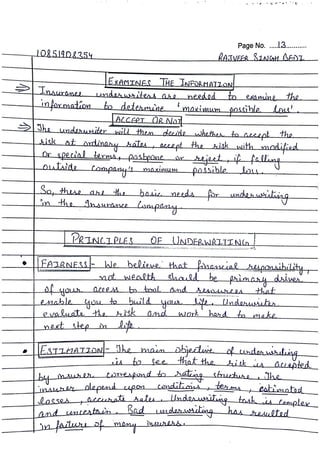 Page No. 13
10851908354
RAJVEER SINGH BEDI
EXAMINES THE INFORMATION
⇒ Insurance underwriters are needed to examine the
information to determine 'maximum possible loss'.
ACCEPT OR NOT
⇒ The underwriter will then decide whether to accept the
risk at ordinary rates, accept the risk with modified
or special terms, postpone or reject, if falling
outside company's maximum possible loss.
So, these are the basic needs for underwriting
in the Insurance Company.
PRINCIPLES OF UNDERWRITING
• FAIRNESS - We believe that financial responsibility,
not wealth should be primary driver
of your access to tool and resources that
enable you to build your life. Underwriter
evaluate the risk and work hard to make
next step in life.
• ESTIMATION - The main objective of underwriting
is to see that the risk is accepted
by insurer correspond to rating structure. The
insurer depend upon conditions, terms, estimated
losses, accurate rates. Underwriting task is complex
and uncertain. Bad underwriting has resulted
in failure of many insurers.